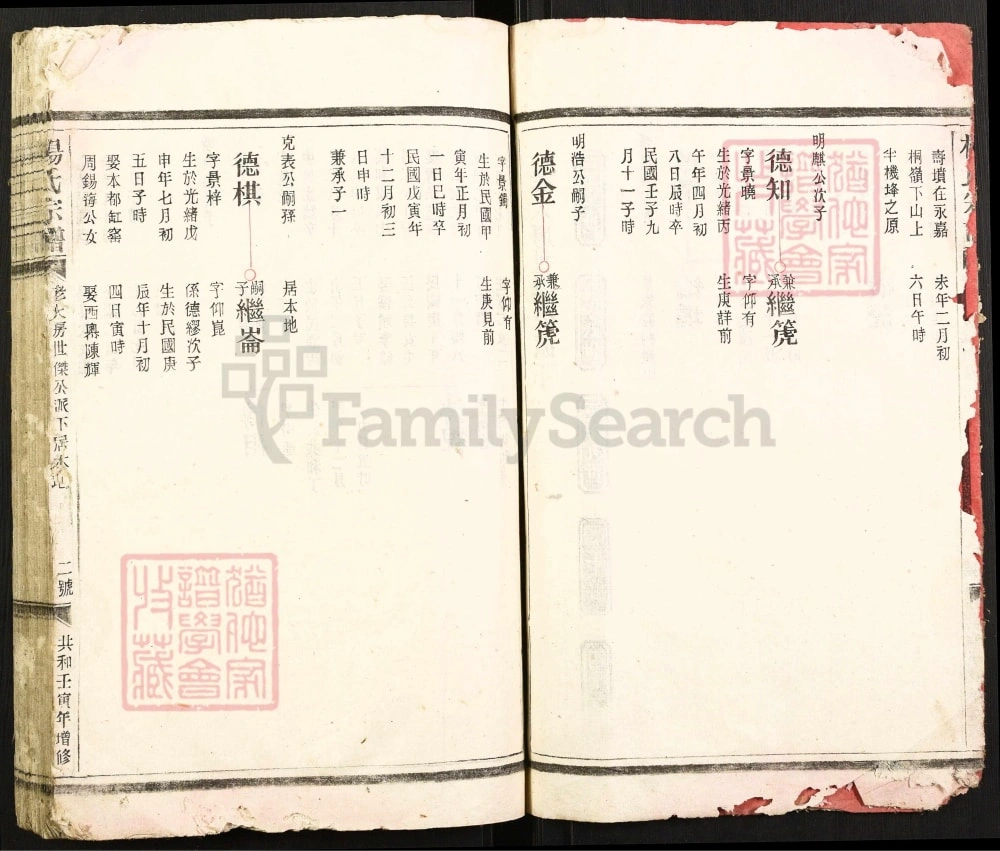 壽墳在永嘉
桐嶺下山上
半機塆之原
未年二月初
六日午時
明麒公次子
德知
字景曉
生於光緒丙
午年四月初
八日辰時卒
民國壬子九
月十一子時
兼承
繼箎
字仰有
生庚詳前
明浩公嗣子
德金
字景鈿
生於民國甲
寅年正月初
一日巳時卒
民國戊寅年
十二月初三
日申時
兼承子一
兼承
繼箎
字仰有
生庚見前
克表公嗣孫
居本地
德棋
字景梓
生於光緒戊
申年七月初
五日子時
娶本都缸窰
周錫濤公女
嗣子
繼崙
字仰崑
係德繆次子
生於民國庚
辰年十月初
四日寅時
娶西璵陳輝
楊氏宗譜
老大房世傑公派下居本地
二號
共和壬寅年增修
譜學會
收藏
FamilySearch